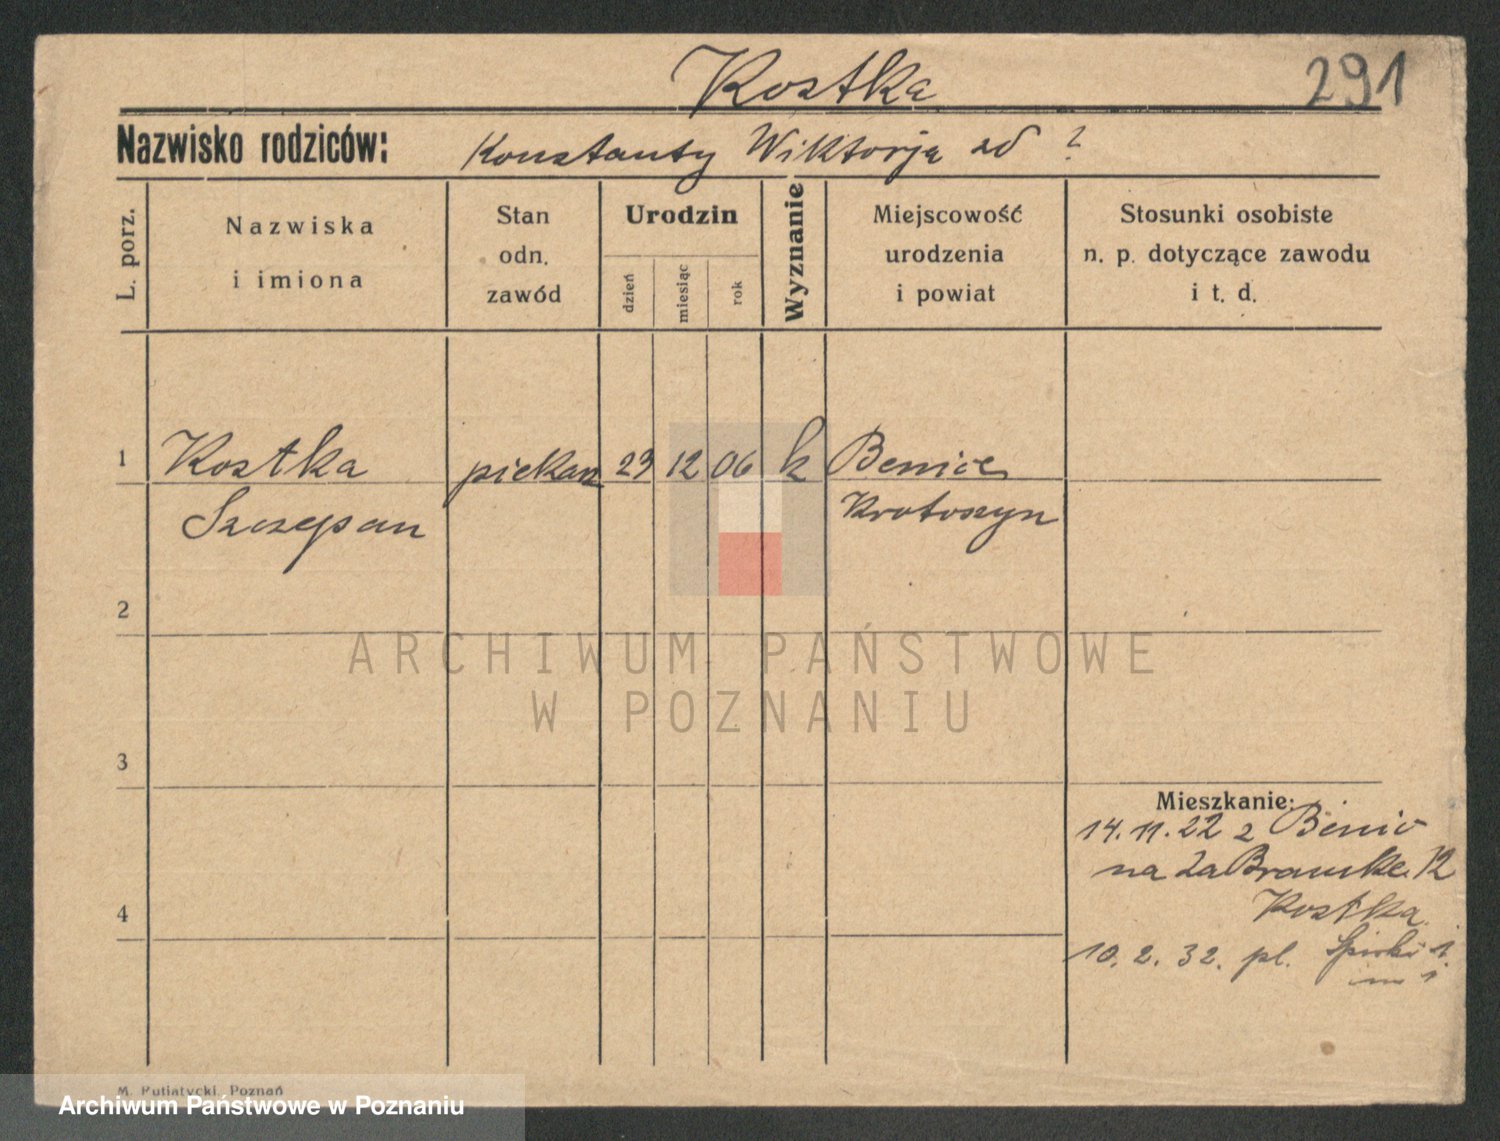 Kostka
291
Nazwisko rodziców: Konstanty Wiktorja zd ?
L. porz.
Nazwiska
i imiona
Stan
odn.
zawód
Urodzin
dzień
miesiąc
rok
Wyznanie
Miejscowość
urodzenia
i powiat
Stosunki osobiste
n. p. dotyczące zawodu
i t. d.
1 Kostka piekarz 23 12 06 k Benice
Szczepan Krotoszyn
2
3
4
ARCHIWUM PAŃSTWOWE
W POZNANIU
Mieszkanie:
14.11.22 z Benic
na Za Bramką 12
Kostka
10.2.32. pl.
M. Putiatycki, Poznań
Archiwum Państwowe w Poznaniu